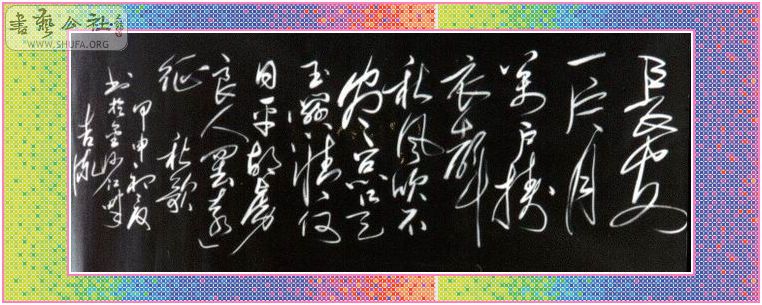 書藝公社
WWW.SHUFA.ORG
長安
一片月
萬户擣
衣聲
秋風吹不
尽總是
玉關情何
日平胡虜
良人罷遠
征 秋歌
甲申初夏
书於金沙江畔